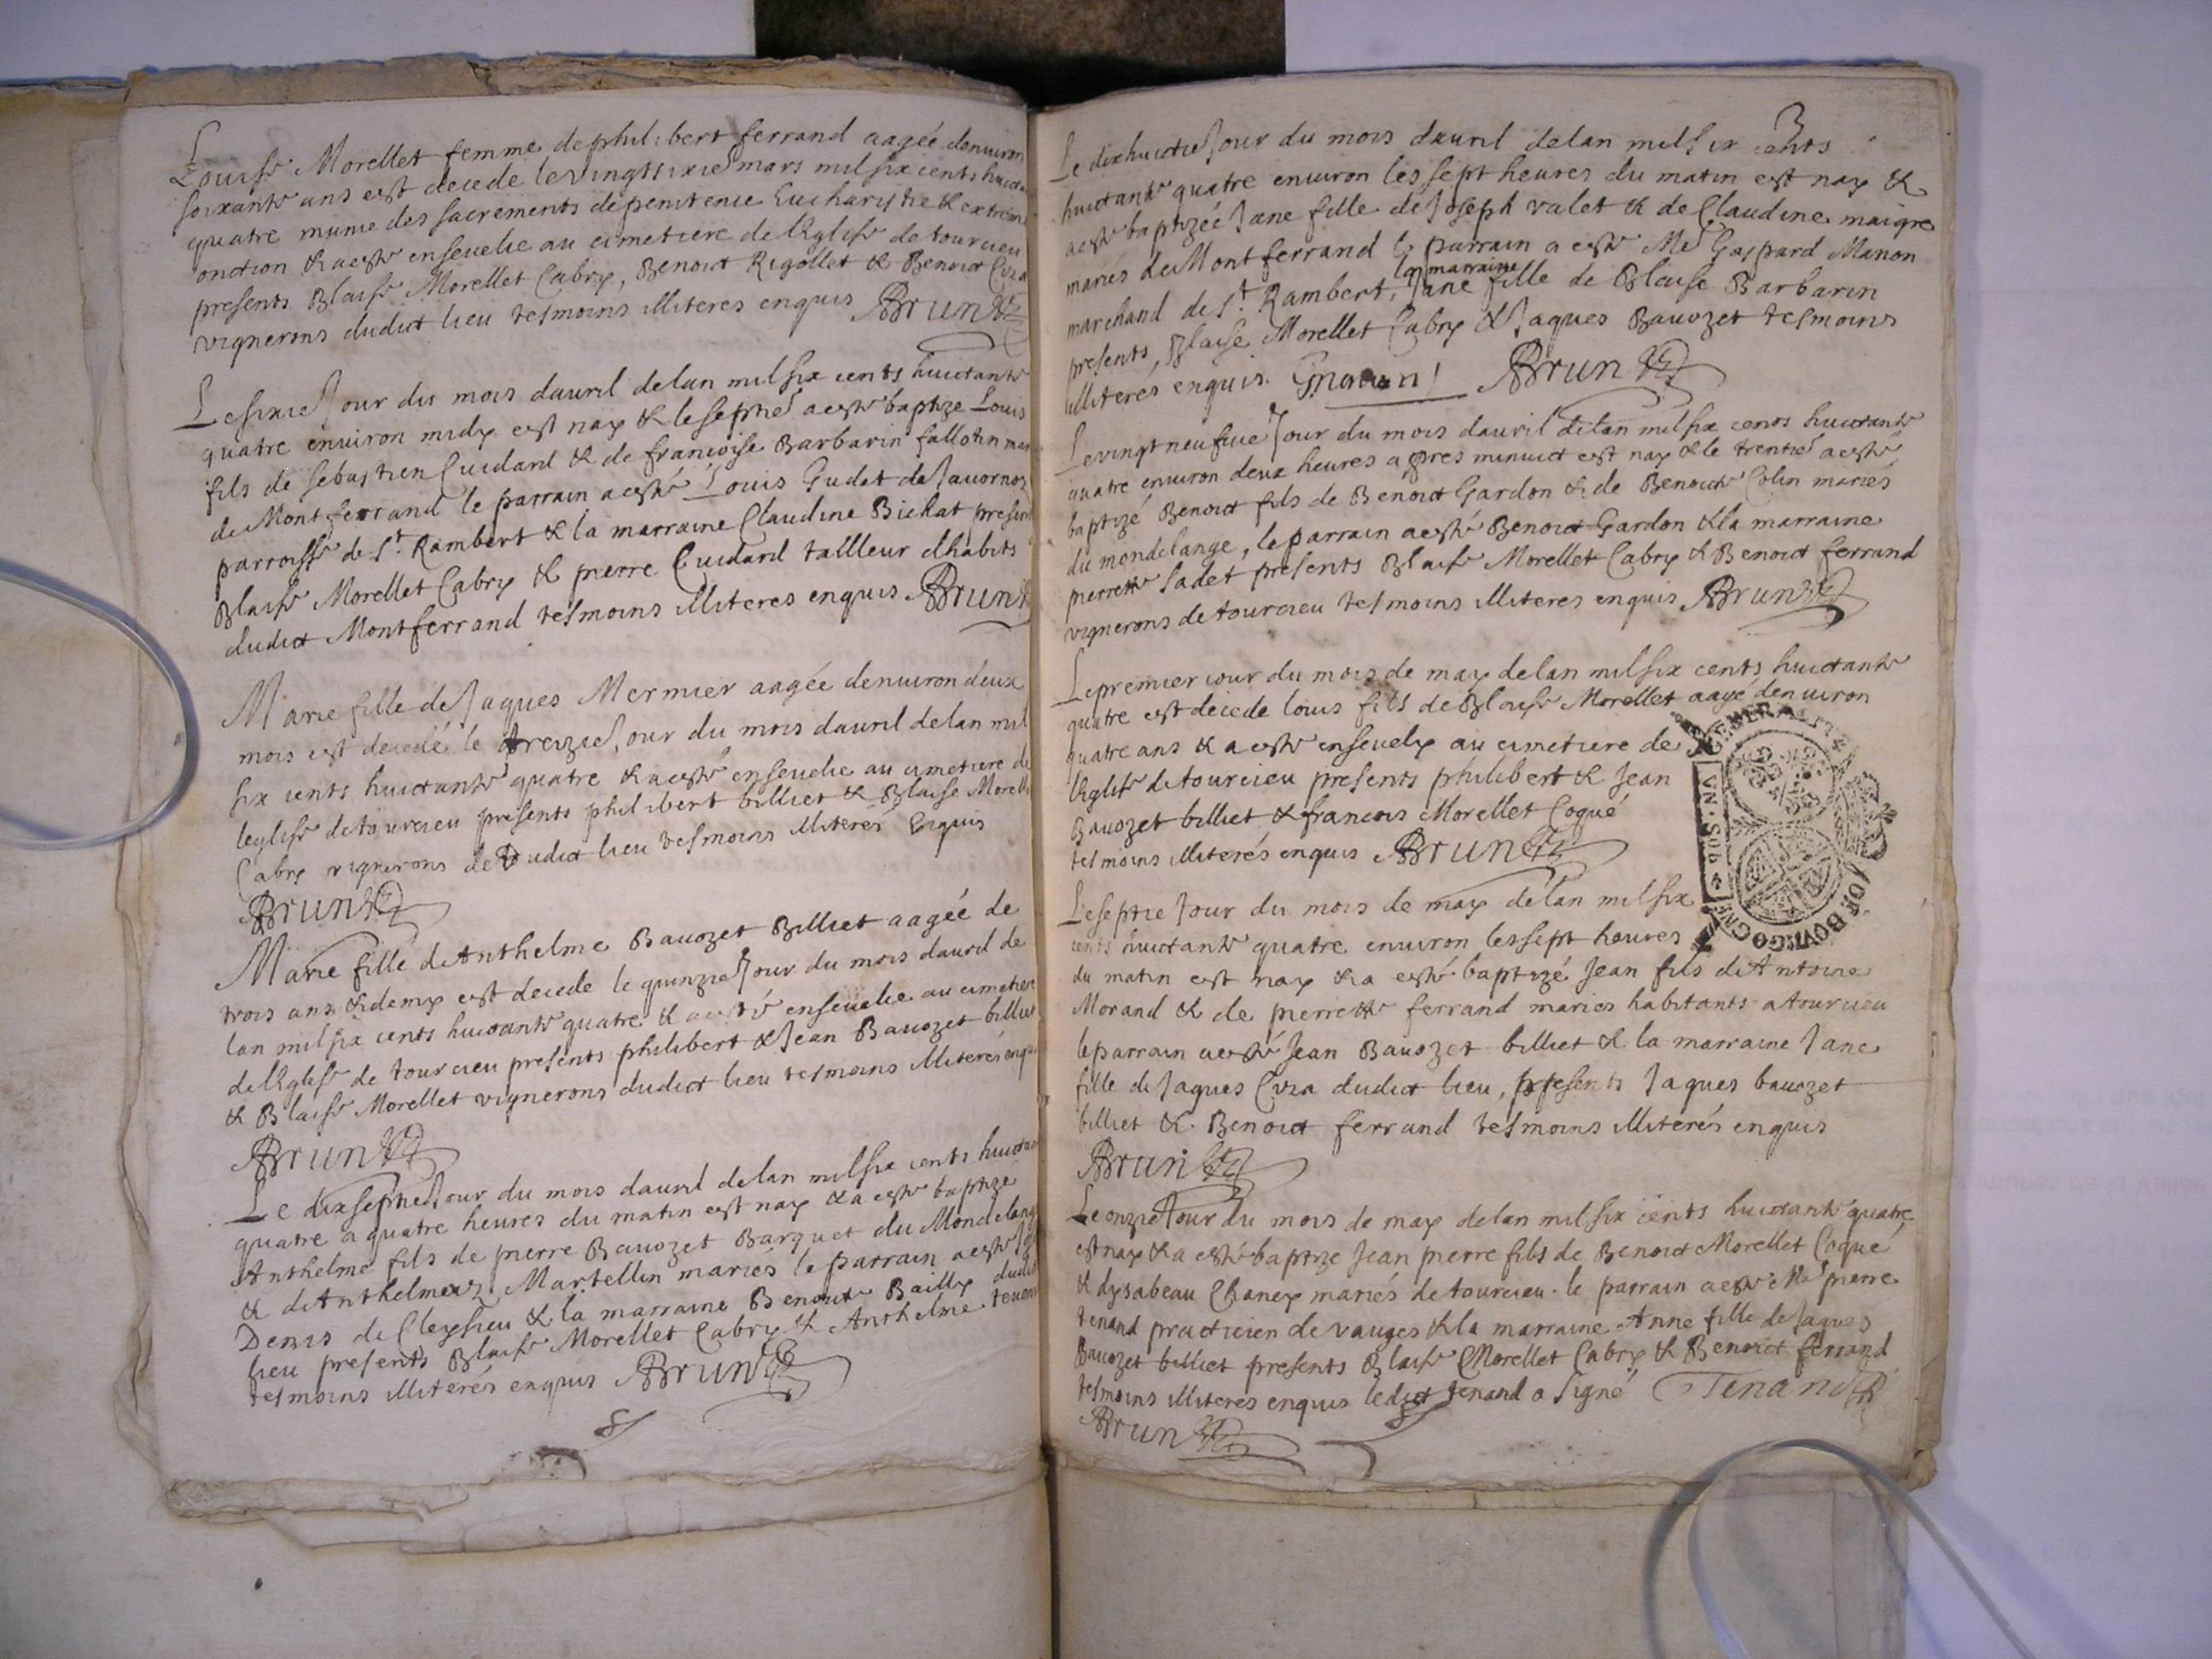 Louise Morellet femme de philibert ferrand aagée denuiron
soixante ans est decede le vingtsixie mars mil six cents huictante
quatre munie des sacrements de penitence Eucharistie & extreme
onction & a esté enseuelie au cimetiere de leglise de tourcieu
presents Blaise Morellet Cabry, Benoict Rigollet & Benoict Ciza
vignerons dudict lieu tesmoins illiteres enquis Brun
Le sixie Jour du mois dauril de lan mil six cents huictante
quatre enuiron midy est nay & le septie a esté baptize Louis
fils de sebastien Cuidard & de francoise Barbarin fallotin
de Montferrand le parrain a esté Louis Gudet de Jauornoz
parroisse de St Rambert & la marraine Claudine Bichat
Blaise Morellet Cabry & pierre Cuidard tailleur dhabits
dudict Montferrand tesmoins illiteres enquis Brun
Marie fille de Jaques Mermier aagée denuiron deux
mois est decedé le treizie Jour du mois dauril de lan mil
six cents huictante quatre & a esté enseuelie au cimetiere de
leglise de tourcieu presents philibert billiet & Blaise
Cabry vignerons de dudict lieu tesmoins illiterés Enquis
Brun
Marie fille de Anthelme Bauozet Billiet aagée de
trois ans & demy est decede le quinzie Jour du mois dauril de
lan mil six cents huictante quatre & a esté enseuelie au cimetiere
de leglise de tourcieu presents philibert & Jean Bauozet billiet
& Blaise Morellet vignerons dudict lieu tesmoins illiterés
Brun
Le dixseptie Jour du mois dauril de lan mil six cents
quatre a quatre heures du matin est nay & a esté baptize
Anthelme fils de pierre Bauozet Barquet du Mondelange
& de Anthelmez Martellin mariés le parrain a esté
Denis de Cleysieu & la marraine Benoite Bailly
lieu presents Blaise Morellet Cabry & Anthelme
tesmoins illiterés enquis Brun
3
Le dixhuictie Jour du mois dauril de lan mil six cents
huictante quatre enuiron les sept heures du matin est nay &
a esté baptizée Jane fille de Joseph valet & de Claudine maigre
mariés de Montferrand le parrain a esté Me Gaspard Manon
marchand de St Rambert, la marraine Jane fille de Blaise Barbarin
presents, Blaise Morellet Cabry & Jaques Bauozet tesmoins
illiterés enquis. Brun
Le vingt neufuie Jour du mois dauril de lan mil six cents huictante
quatre enuiron deux heures apres minuict est nay & le trentie a esté
baptizé Benoict fils de Benoict Gardon & de Benoicte Colin mariés
du mondelange, le parrain a esté Benoict Gardon & la marraine
pierrette Sadet presents Blaise Morellet Cabry & Benoict ferrand
vignerons de tourcieu tesmoins illiteres enquis Brun
Le premier iour du mois de may de lan mil six cents huictante
quatre est decede louis fils de Blaise Morellet aagé denuiron
quatre ans & a esté enseuely au cimetiere de
leglise de tourcieu presents philibert & Jean
Bauozet billiet & francois Morellet Coqué
tesmoins illiterés enquis Brun
GENERALITE DE BOVRGOGNE
VN · SOL
Le septie Jour du mois de may de lan mil six
cents huictante quatre enuiron les sept heures
du matin est nay & a esté baptizé Jean fils de Antoine
Morand & de pierrette ferrand mariés habitants a tourcieu
le parrain a esté Jean Bauozet billiet & la marraine Jane
fille de Jaques Ciza dudict lieu, presents Jaques bauozet
billiet & Benoict ferrand tesmoins illiterés enquis
Brun
Le onzie Jour du mois de may de lan mil six cents huictante quatre
est nay & a esté baptize Jean pierre fils de Benoict Morellet Coqué
& dysabeau Chaney mariés de tourcieu. le parrain a esté Me pierre
tenand practicien de vauges & la marraine Anne fille de Jaques
Bauozet billiet presents Blaise Morellet Cabry & Benoict ferrand
tesmoins illiteres enquis ledict tenand a signé Tenand
Brun